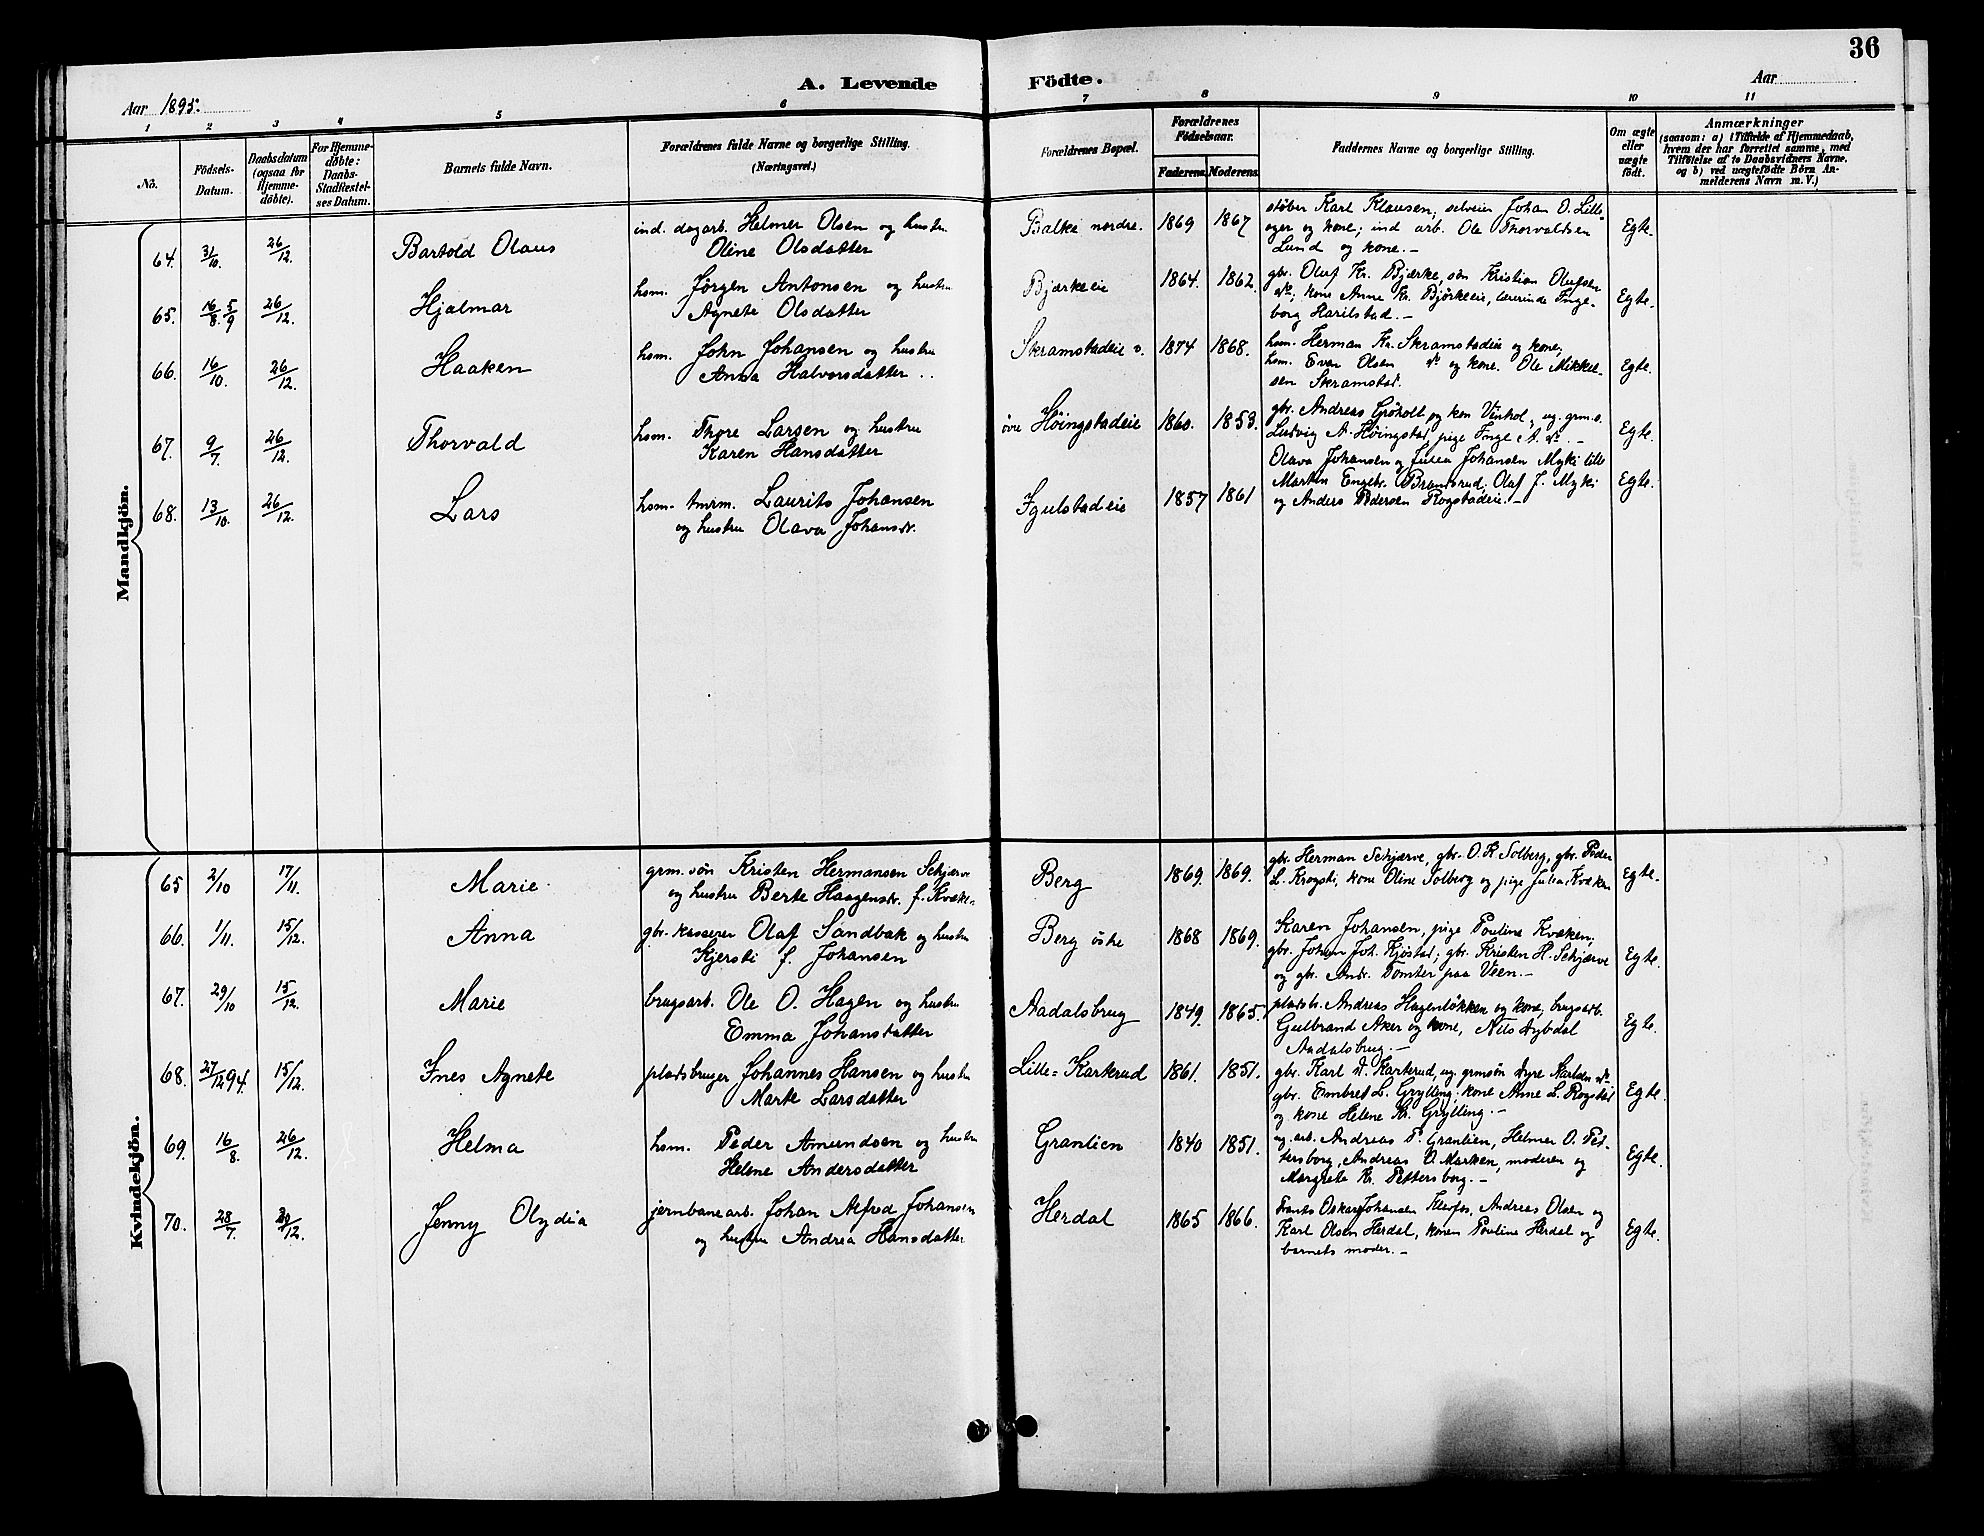 36
A. Levende Födte.
Aar 1895.
Aar
1 2 3 4 5 6 7 8 9 10 11
No.
Födsels-Datum.
Daabsdatum (ogsaa for Hjemme-döbte).
For Hjemme-döbte: Daabs-Stadfæstel-ses Datum.
Barnets fulde Navn.
Forældrenes fulde Navne og borgerlige Stilling. (Næringsvei.)
Forældrenes Bopæl.
Forældrenes Födselsaar.
Faderens Moderens
Faddernes Navne og borgerlige Stilling.
Om ægte eller uægte födt.
Anmærkninger
(saasom: a) i Tilfælde af Hjemmedaab,
hvem der har forrettet samme, med
Tilföielse af to Daabsvidners Navne.
og b) ved uægtefödte Börn An-
melderens Navn m. V.)
Mandkjön.
64. 31/10. 26/12. Bartold Olaus
ind. dagarb. Helmer Olsen og hustru
Oline Olsdatter
Balke nordre. 1869 1867
støber Karl Klausen; selveier Johan O. Lille-
eger og kone; ind arb. Ole Thorvaldsen
Lund og kone. –
Egte.
65. 16/8. 5/9 26/12. Hjalmar
hsm. Jørgen Antonsen og hustru
Agnete Olsdatter
Bjærkeeie 1864. 1862.
gbr. Oluf Kr. Bjærke, søn Kristian Olufsen
do; kone Anne Kr. Bjørkeeie, lærerinde Inge-
borg Harilstad. –
Egte.
66. 16/10. 26/12. Haaken
hsm. John Johansen og hustru
Anna Halvorsdatter
Skramstadeie v. 1874 1868.
hsm. Herman Kr. Skramstadeie og kone;
hsm. Even Olsen do og kone. Ole Mikkel-
sen Skramstad.
Egte.
67. 9/7. 26/12. Thorvald
hsm. Thore Larsen og hustru
Karen Hansdatter
övre Höingstadeie 1860. 1853.
gbr. Andreas Gröholt og kon Vinhol, ug. grm.s.
Ludvig A. Höingstad, pige Inge A. do. –
Egte.
68. 13/10. 26/12. Lars
hsm. tmrm. Laurits Johansen
og hustru Olava Johansdr.
Igulstadeie 1857 1861
Olava Johansen og Julea Johansen Myki lille
Martin Engebr. Brandsrud. Olaf J. Myki
og Anders Pedersen Rogstadeie. –
Egte.
Kvindekjön.
65 2/10 17/11. Marie.
grm. søn Kristen Hermansen Sehjærve
og hustru Berte Haagensdr. f. Kvæken
Berg 1869. 1869.
gbr. Herman Sehjærve, gbr. O. R. Solberg, gbr. Peder
L. Krogsti, kone Oline Solberg og pige Julea Kvæken
Egte.
66. 1/11. 15/12. Anna
gbr. kasserer Olaf Sandbak og hustru
Kjersti f. Johansen
Berg östre 1868 1869.
Karen Johansen, pige Pouline Kvæken;
gbr. Johan Joh. Kjöstad; gbr. Kristen H. Sehjærve
og gbr. Andr. Tomter paa Veen. –
Egte.
67. 29/10 15/12. Marie
brugsarb. Ole O. Hagen og hustru
Emma Johansdatter
Aadalsbrug 1849. 1865.
pladsbr. Andreas Hagenløkken og kone; brugsarb.
Gulbrand Aker og kone, Nils Nybdal
Aadalsbrug. –
Egte.
68. 27/12 94. 15/12. Ines Agnete
pladsbruger Johannes Hansen og hustru
Marte Larsdatter
Lille-Karterud 1861. 1851.
gbr. Karl N. Karterud, ug. grmsön Syre Karlsen do
gbr. Embret L. Grylling, kone Anne L. Rogstad
og kone Helene Kr. Grylling. –
Egte.
69. 16/8. 26/12. Helma
hsm. Peder Amundsen og hustru
Helene Andersdatter
Granlien 1840 1851.
ug. arb. Andreas P. Granlien, Helmer O. Pet-
tersborg, Andreas O. Marken, moderen og
Margrete Kr. Pettersborg. –
Egte.
70. 28/7. 29/12. Jenny Olydia
jernbanearb. Johan Alfred Johansen
og hustru Andrea Hansdatter
Herdal 1865 1866.
Frants Oskar Johansen Klevfos, Andreas Olsen og
Karl Olsen Herdal, konen Pouline Herdal og
barnets moder. –
Egte.